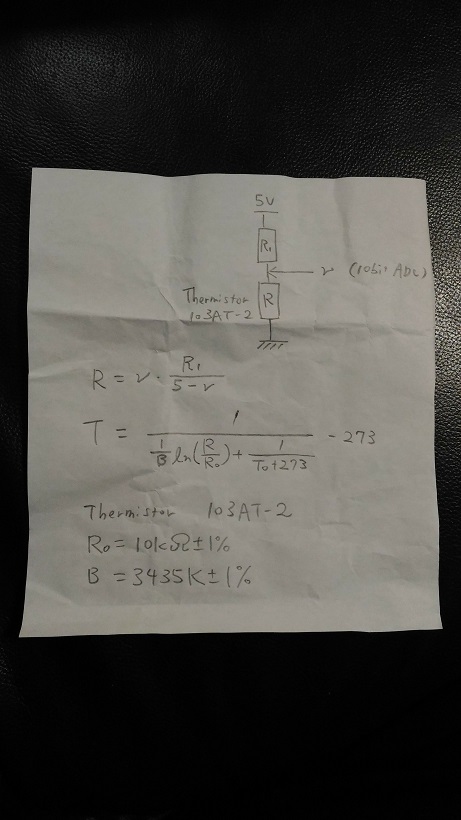 5V
R₁
v (10bit ADC)
Thermistor
103AT-2
R
R = v · R₁ / (5 - v)
T = 1 / (1/B ln(R/R₀) + 1/(T₀+273)) - 273
Thermistor 103AT-2
R₀ = 10kΩ ± 1%
B = 3435K ± 1%